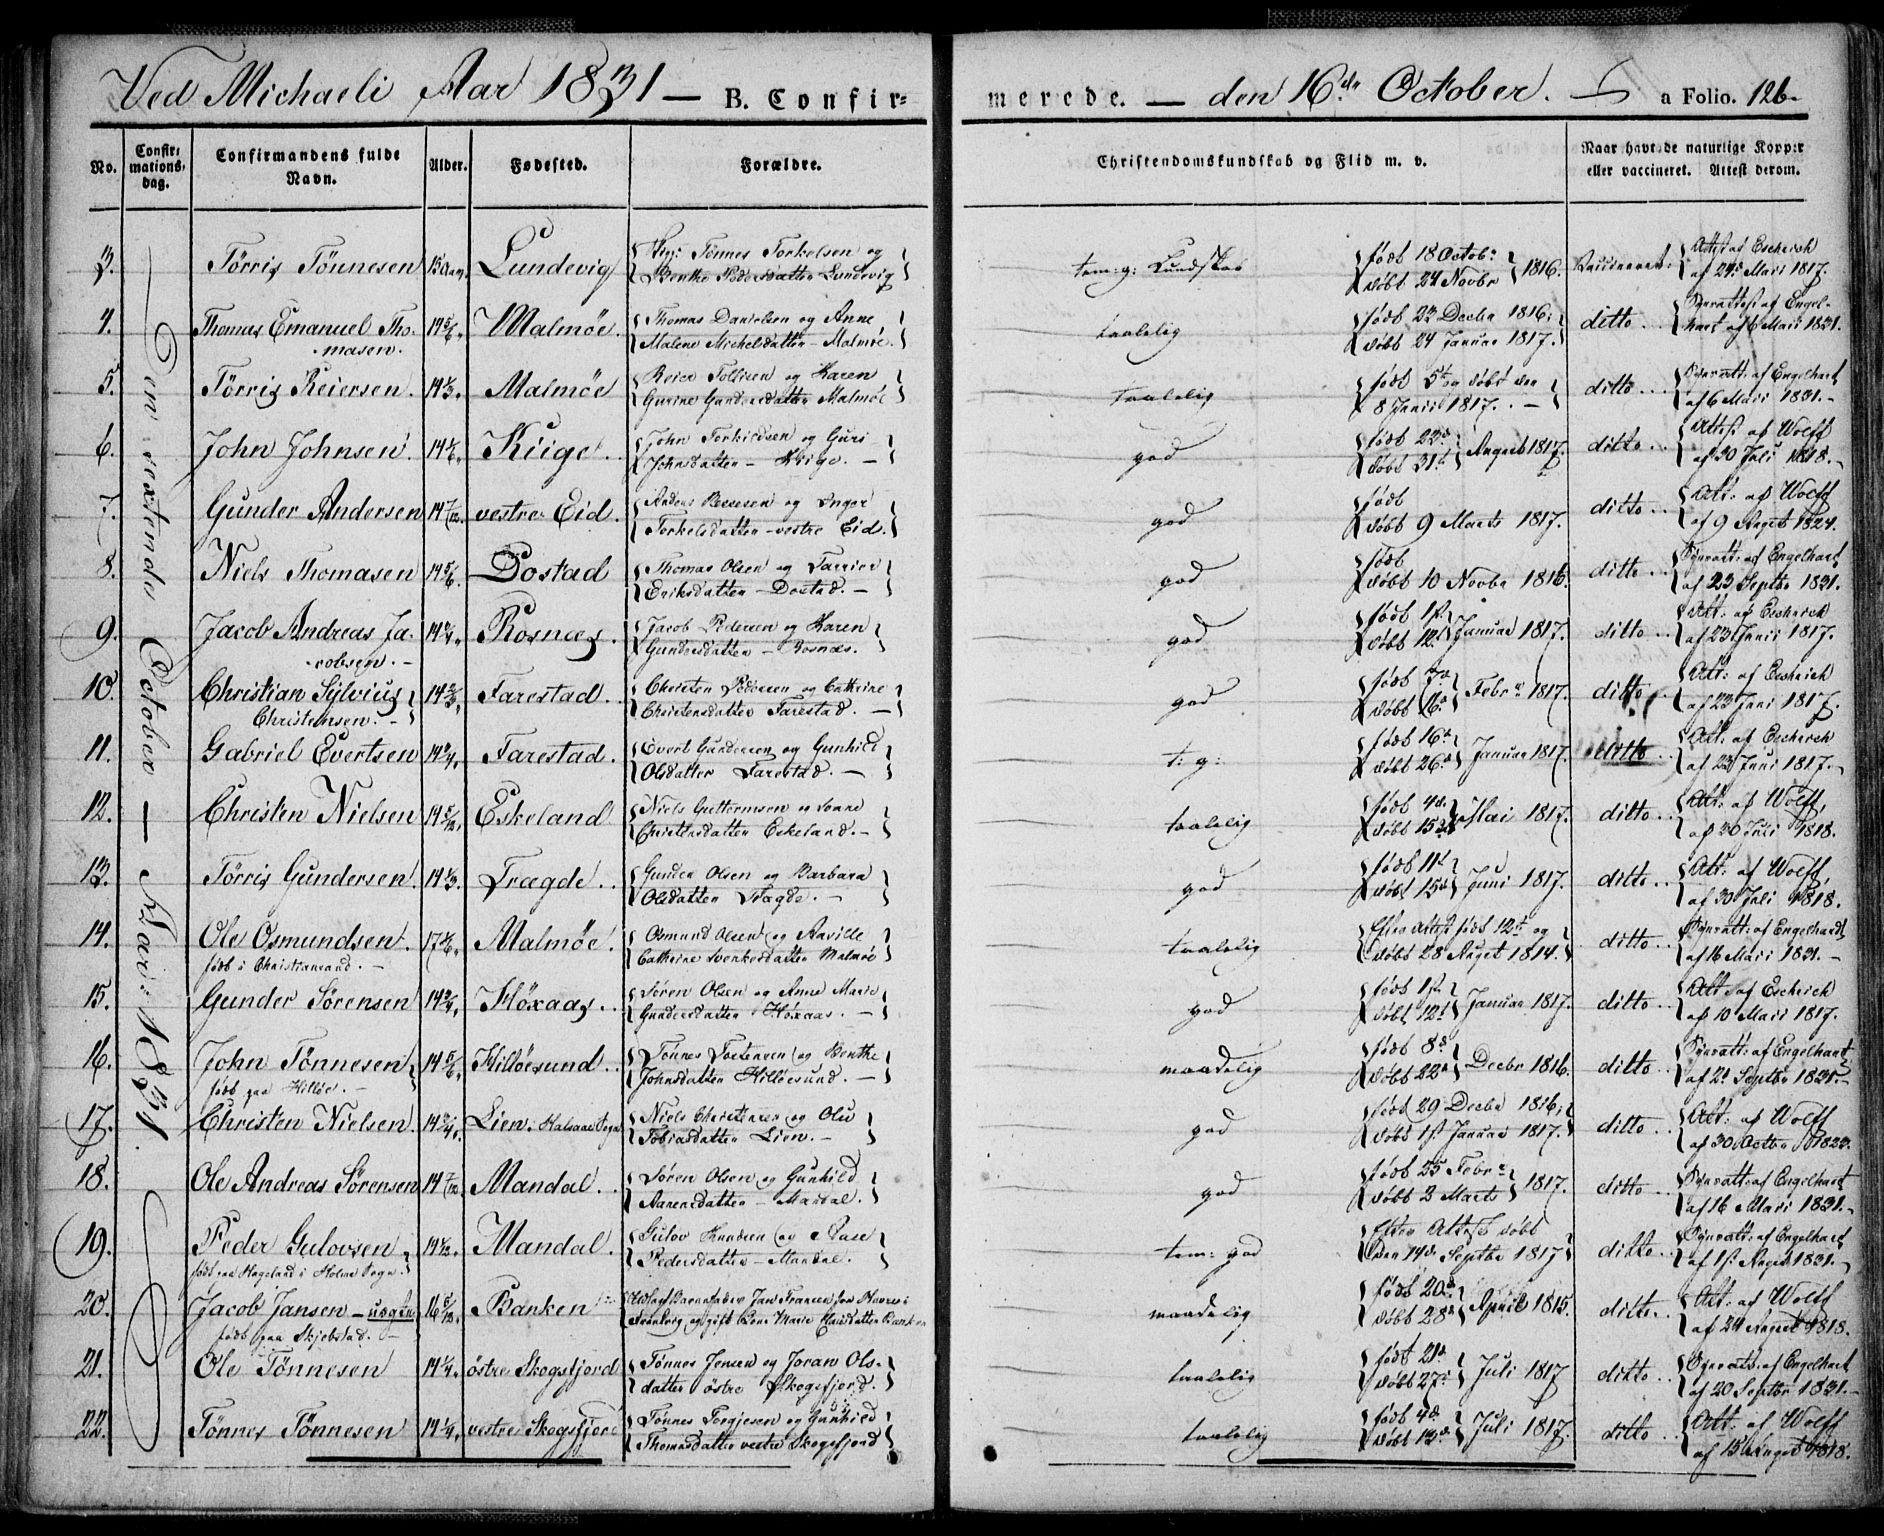 Ved Michaeli Aar 1831 — B. Confir=
merede. — den 16de October. a Folio. 126
No.
Confir:
mations,
dag.
Confirmandens fulde
Navn.
Alder.
Fødested.
Forældre.
Christendomskundskab og Flid m. v.
Naar havt de naturlige Kopper
eller vaccineret. Attest derom.
Den sextende October — Aar 1831.
3. Törris Tönnesen 15 Aar Lundevig Tönnes Torkelsen og
Benthe Pedersdatter Lundevig
tem: g: Kundskab født 18 Octobr
døbt 24 Novbr 1816. Vaccineret. Attest af Escherich
af 24 Mai 1817.
4. Thomas Emanuel Tho-
masen. 14 5/6. Malmöe. Thomas Danielsen og Anne
Malene Michelsdatter – Malmöe.
taalelig født 23 Decbr 1816;
døbt 24 Januar 1817. ditto Synsattest af Engel-
hart af 6 Mai 1831.
5. Törris Reiersen. Malmöe Reier Tollisen og Karen
Gurine Gundersdatter Malmöe
taalelig født 5t og døbt den
8 Juni 1817. — ditto Synsatt: af Engelhart
af 6 Mai 1831. –
6. John Johnsen. 14 1/6. Kiige. John Torkildsen og Guri
Johnsdatter –
god født 23d
døbt 31t August 1817. ditto Attest af Wolff
af 30 Juli 1818. –
7. Gunder Andersen 14 7/12. vestre Eid. og Inger
Torkelsdatter – vestre Eid.
god født
døbt 9 Marts 1817. ditto Att: af Wolff
af 9 August 1824.
8. Niels Thomasen 14 5/6. Dostad Thomas Olsen og Tarrier
Eriksdatter – Dostad. –
god født
døbt 10 Novbr 1816. ditto Synsatt: af Engelhart
af 23 Septbr 1831.
9. Jacob Andreas Ja-
cobsen. – 14 3/4. Rosnæs. Jacob Pedersen og Karen
Gundersdatter – Rosnæs.
god født 1st
døbt 12t Januar 1817. ditto Att: af Escherich
af 23 Juni 1817.
10. Christian Sylvius
Christensen. – 14 2/3. Farestad. Christen Pedersen og Cathrine
Christensdatter Farestad. –
god født 7de
døbt 16de Febr. 1817. ditto Att: af Escherich
af 23 Juni 1817.
11. Gabriel Evertsen 14 3/4. Farestad. Evert Gundersen og Gunhild
Olsdatter Farestad. –
t: g: født 16de
døbt 26de Januar 1817. ditto Att: af Escherich
af 23 Juni 1817. –
12. Christen Nielsen 14 5/12. Eskeland Niels Guttormsen og
Christensdatter Eskeland. –
taalelig født 4de
døbt 15de Mai 1817. ditto Att: af Wolff,
af 30 Juli 1818.
13. Törris Gundersen. 14 1/3. Trægde. Gunder Olsen og Barbara
Olsdatter Trægde.
god født 11t
døbt 15de Juni 1817. ditto Att: af Wolff,
af 30 Juli 1818.
14. Ole Osmundsen.
født i Christiansand. – 17 1/6. Malmöe. Osmund Olsen og
Cathrine Svenkesdatter Malmöe
taalelig Efter Attest født 12t og
døbt 28 August 1814. ditto Synsatt: af Engelhardt
af 16 Mai 1831. –
15. Gunder Sörensen 14 3/4. Höxaas. Sören Olsen og Anne Marie
Gundersdatter Höxaas. –
god født 1st
døbt 12t Januar 1817. ditto Att: af Escherich
af 10 Mai 1817.
16. John Tönnesen
født paa Hillöe. – 14 5/6. Hillöesund. Tönnes Torstensen og Benthe
Johnsdatter Hillöesund. –
maadelig født 8de
døbt 22de Decbr 1816. ditto Synsatt: af Engelhart
af 21 Septbr 1831. –
17. Christen Nielsen. 14 3/4. Lien i Halsaae Sogn Niels Christensen og Olu
Tobiasdatter Lien. –
god født 29 Decbr 1816;
døbt 1st Januar 1817. ditto Att: af Wolff
af 30 Octbr 1823.
18. Ole Andreas Sörensen 14 7/12. Mandal. Sören Olsen og Gunhild
Aanensdatter – Mandal.
god født 25 Febr.
døbt 3 Marts 1817. ditto Synsatt: af Engelhart
af 16 Mai 1831. –
19. Peder Gulovsen
født paa Hageland i Holme Sogn. 14 1/12. Mandal. Gulov Knudsen og Aase
Pedersdatter – Mandal.
tem: god Efter Attest døbt
den 14de Septbr 1817 ditto Synsatt: af Engelhart
af 1st August 1831. –
20. Jacob Jansen – uægte
født paa Skjebstad. – 16 5/12. Banken
Svinevig og gift Marie Clausdatter Banken
maadelig født 20de
døbt 28de April 1815. ditto Att: af Wolff
af 24 August 1818.
21. Ole Tönnesen 14 1/4. östre Skogsfjord Tönnes Jensen og Joran Ols-
datter östre Skogsfjord.
taalelig født 21de
døbt 27de Juli 1817 ditto Synsatt: af Engelhart
af 20 Septbr 1831. –
22. Tönnes Tönnesen 14 1/4. vestre Skogsfjord Tönnes Torgjesen og Gunhild
Thomasdatter vestre Skogsfjord
taalelig født 4de
døbt 13de Juli 1817. ditto Att: af Wolff
af 15 August 1818.